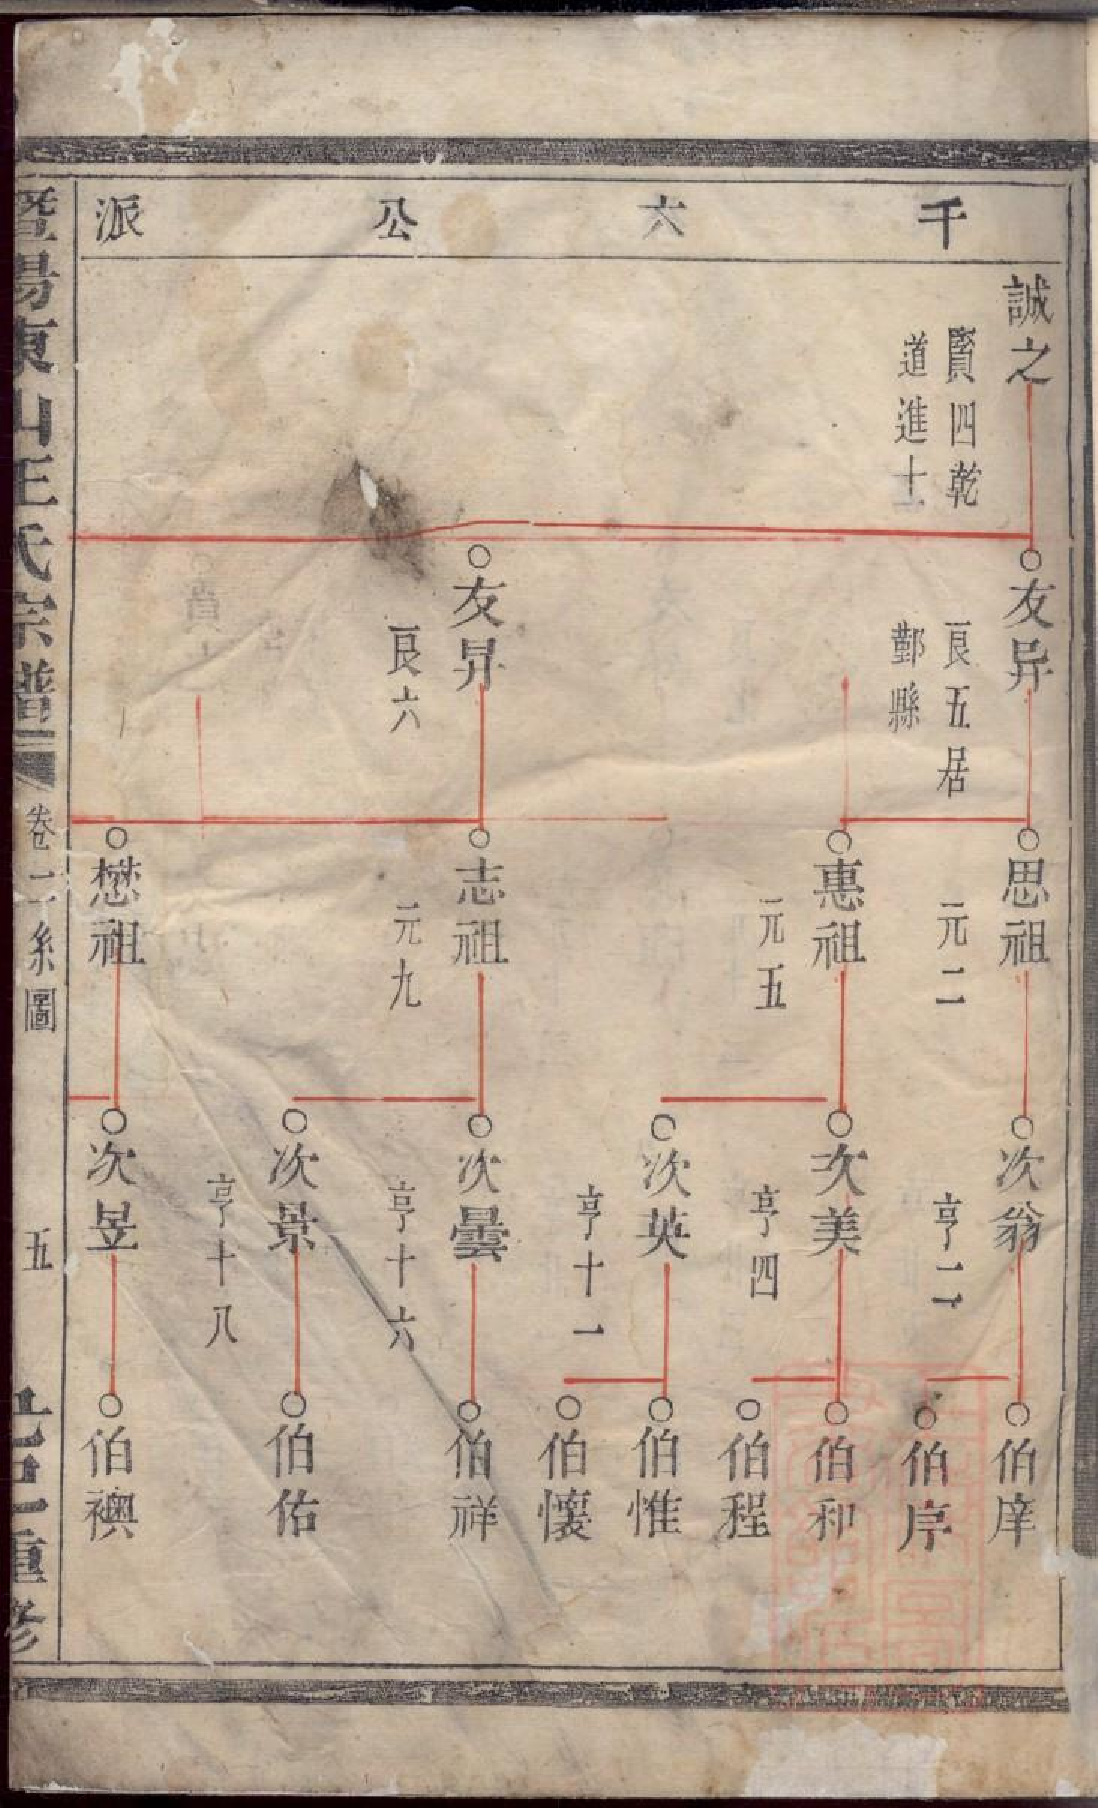 千六公派
誠之
賢四乾
道進士
友异
良五居
鄞縣
友昇
良六
思祖
元二
惠祖
元五
志祖
元九
懋祖
次翁
亨二
次美
亨四
次英
亨十一
次曇
亨十六
次景
亨十八
次昱
伯庠
伯序
伯和
伯程
伯惟
伯懷
伯祥
伯佑
伯襖
暨陽東山王氏宗譜
卷二系圖
五
重修